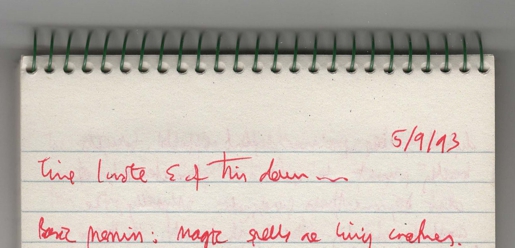 5/9/93
Time I wrote some of this down
Basic premise: magic spells are living creatures.